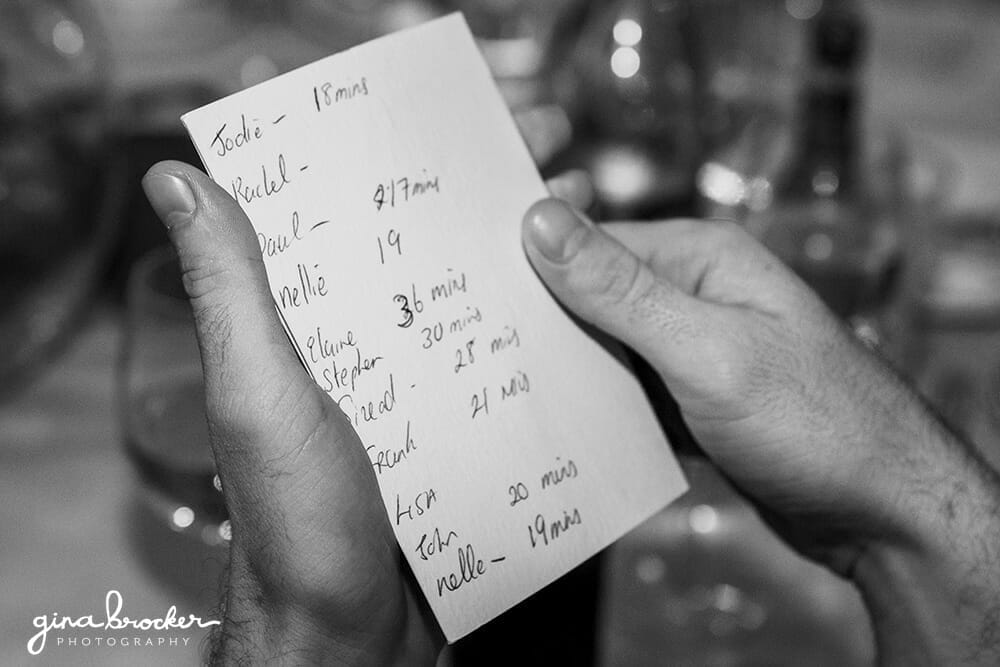 Jodie - 18 mins
Rachel -
Paul - 17 mins
nellie 19
Elaine 36 mins
Stephen 30 mins
Sinead - 28 mins
Frank 21 mins
LISA
John 20 mins
nelle - 19 mins
gina brocker
PHOTOGRAPHY